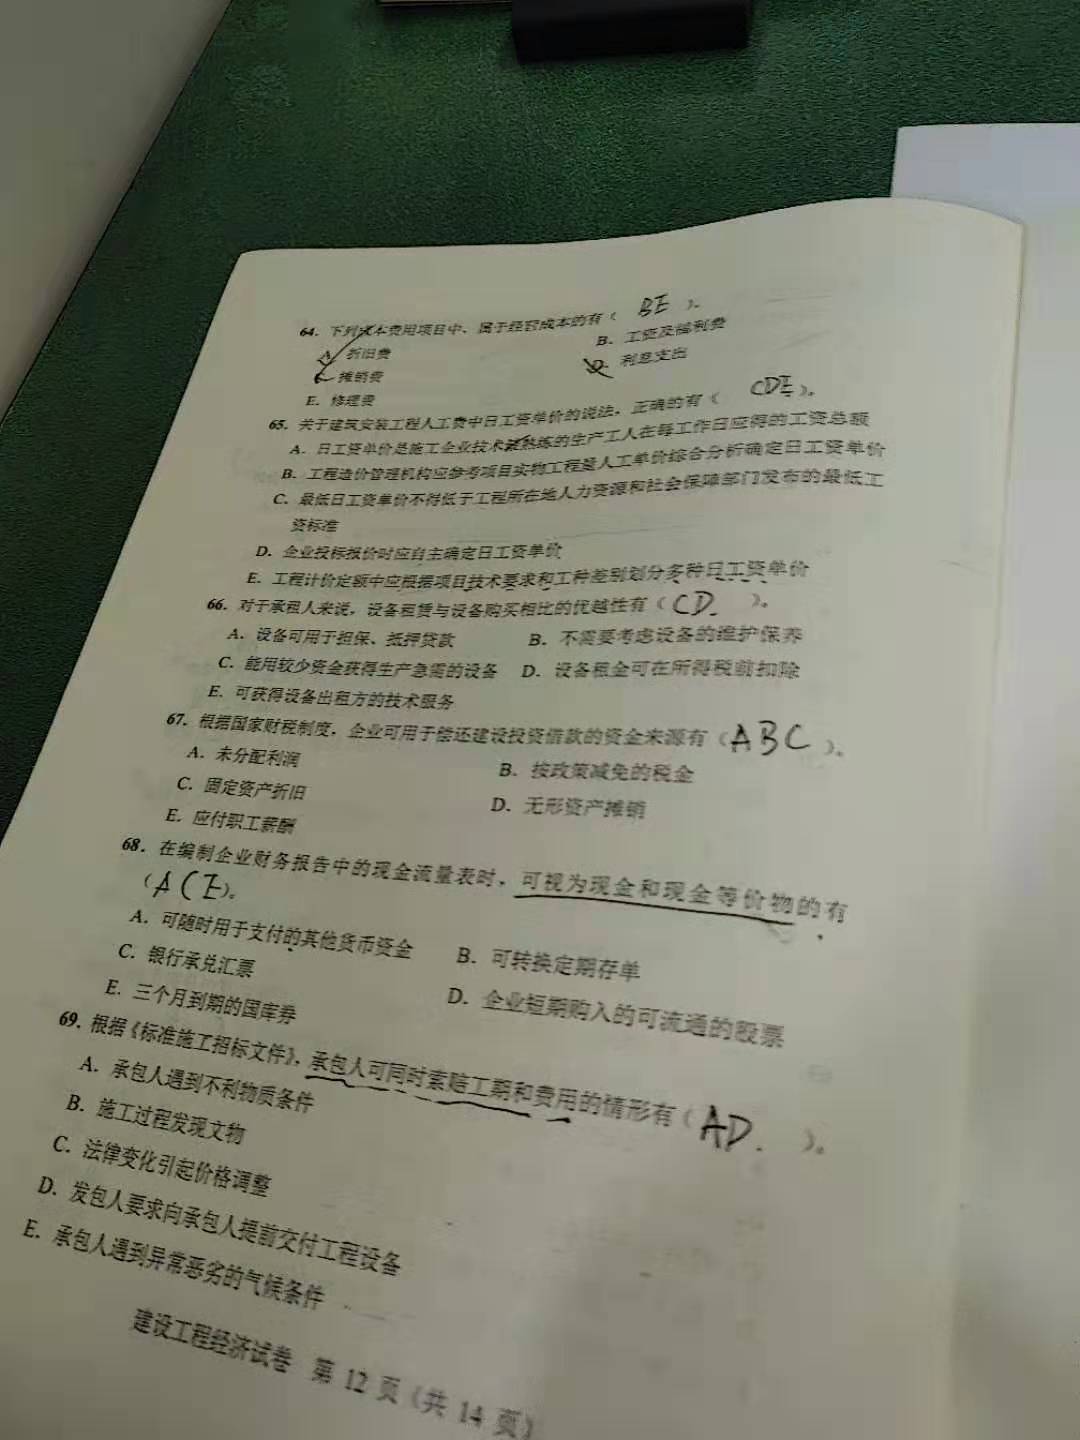 64. 下列成本费用项目中、属于经营成本的有（ BE ）。
A. 折旧费 B. 工资及福利费
C. 摊销费 D. 利息支出
E. 修理费
65. 关于建筑安装工程人工费中日工资单价的说法，正确的有（ CDE ）。
A. 日工资单价是施工企业技术最熟练的生产工人在每工作日应得的工资总额
B. 工程造价管理机构应参考项目实物工程量人工单价综合分析确定日工资单价
C. 最低日工资单价不得低于工程所在地人力资源和社会保障部门发布的最低工
资标准
D. 企业投标报价时应自主确定日工资单价
E. 工程计价定额中应根据项目技术要求和工种差别划分多种日工资单价
66. 对于承租人来说，设备租赁与设备购买相比的优越性有（ CD. ）。
A. 设备可用于担保、抵押贷款 B. 不需要考虑设备的维护保养
C. 能用较少资金获得生产急需的设备 D. 设备租金可在所得税前扣除
E. 可获得设备出租方的技术服务
67. 根据国家财税制度，企业可用于偿还建设投资借款的资金来源有（ ABC ）。
A. 未分配利润 B. 按政策减免的税金
C. 固定资产折旧 D. 无形资产摊销
E. 应付职工薪酬
68. 在编制企业财务报告中的现金流量表时，可视为现金和现金等价物的有
（ACE）。
A. 可随时用于支付的其他货币资金 B. 可转换定期存单
C. 银行承兑汇票 D. 企业短期购入的可流通的股票
E. 三个月到期的国库券
69. 根据《标准施工招标文件》，承包人可同时索赔工期和费用的情形有（ AD. ）。
A. 承包人遇到不利物质条件
B. 施工过程发现文物
C. 法律变化引起价格调整
D. 发包人要求向承包人提前交付工程设备
E. 承包人遇到异常恶劣的气候条件
建设工程经济试卷 第 12 页（共 14 页）